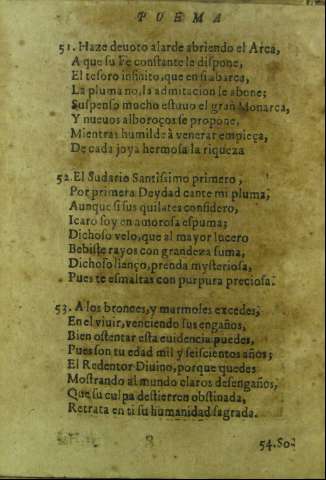 POEMA
51. Haze deuoto alarde abriendo el Arca,
A que su Fe constante le dispone,
El tesoro infinito, que en si abarca,
La pluma no, la admiracion le abone;
Suspenso mucho estuuo el gran Monarca,
Y nueuos alboroços se propone,
Mientras humilde à venerar empieça,
De cada joya hermosa la riqueza
52. El Sudario Santissimo primero,
Por primera Deydad cante mi pluma,
Aunque si sus quilates considero,
Icaro soy en amorosa espuma;
Dichoso velo, que al mayor lucero
Bebiste rayos con grandeza suma,
Dichoso lienço, prenda mysteriosa,
Pues te esmaltas con purpura preciosa.
53. A los bronces, y marmoles excedes,
En el viuir, venciendo sus engaños,
Bien ostentar esta euidencia puedes,
Pues son tu edad mil y seiscientos años;
El Redentor Diuino, porque quedes
Mostrando al mundo claros desengaños,
Que su culpa destierren obstinada,
Retrata en ti su humanidad sagrada.
54. So-